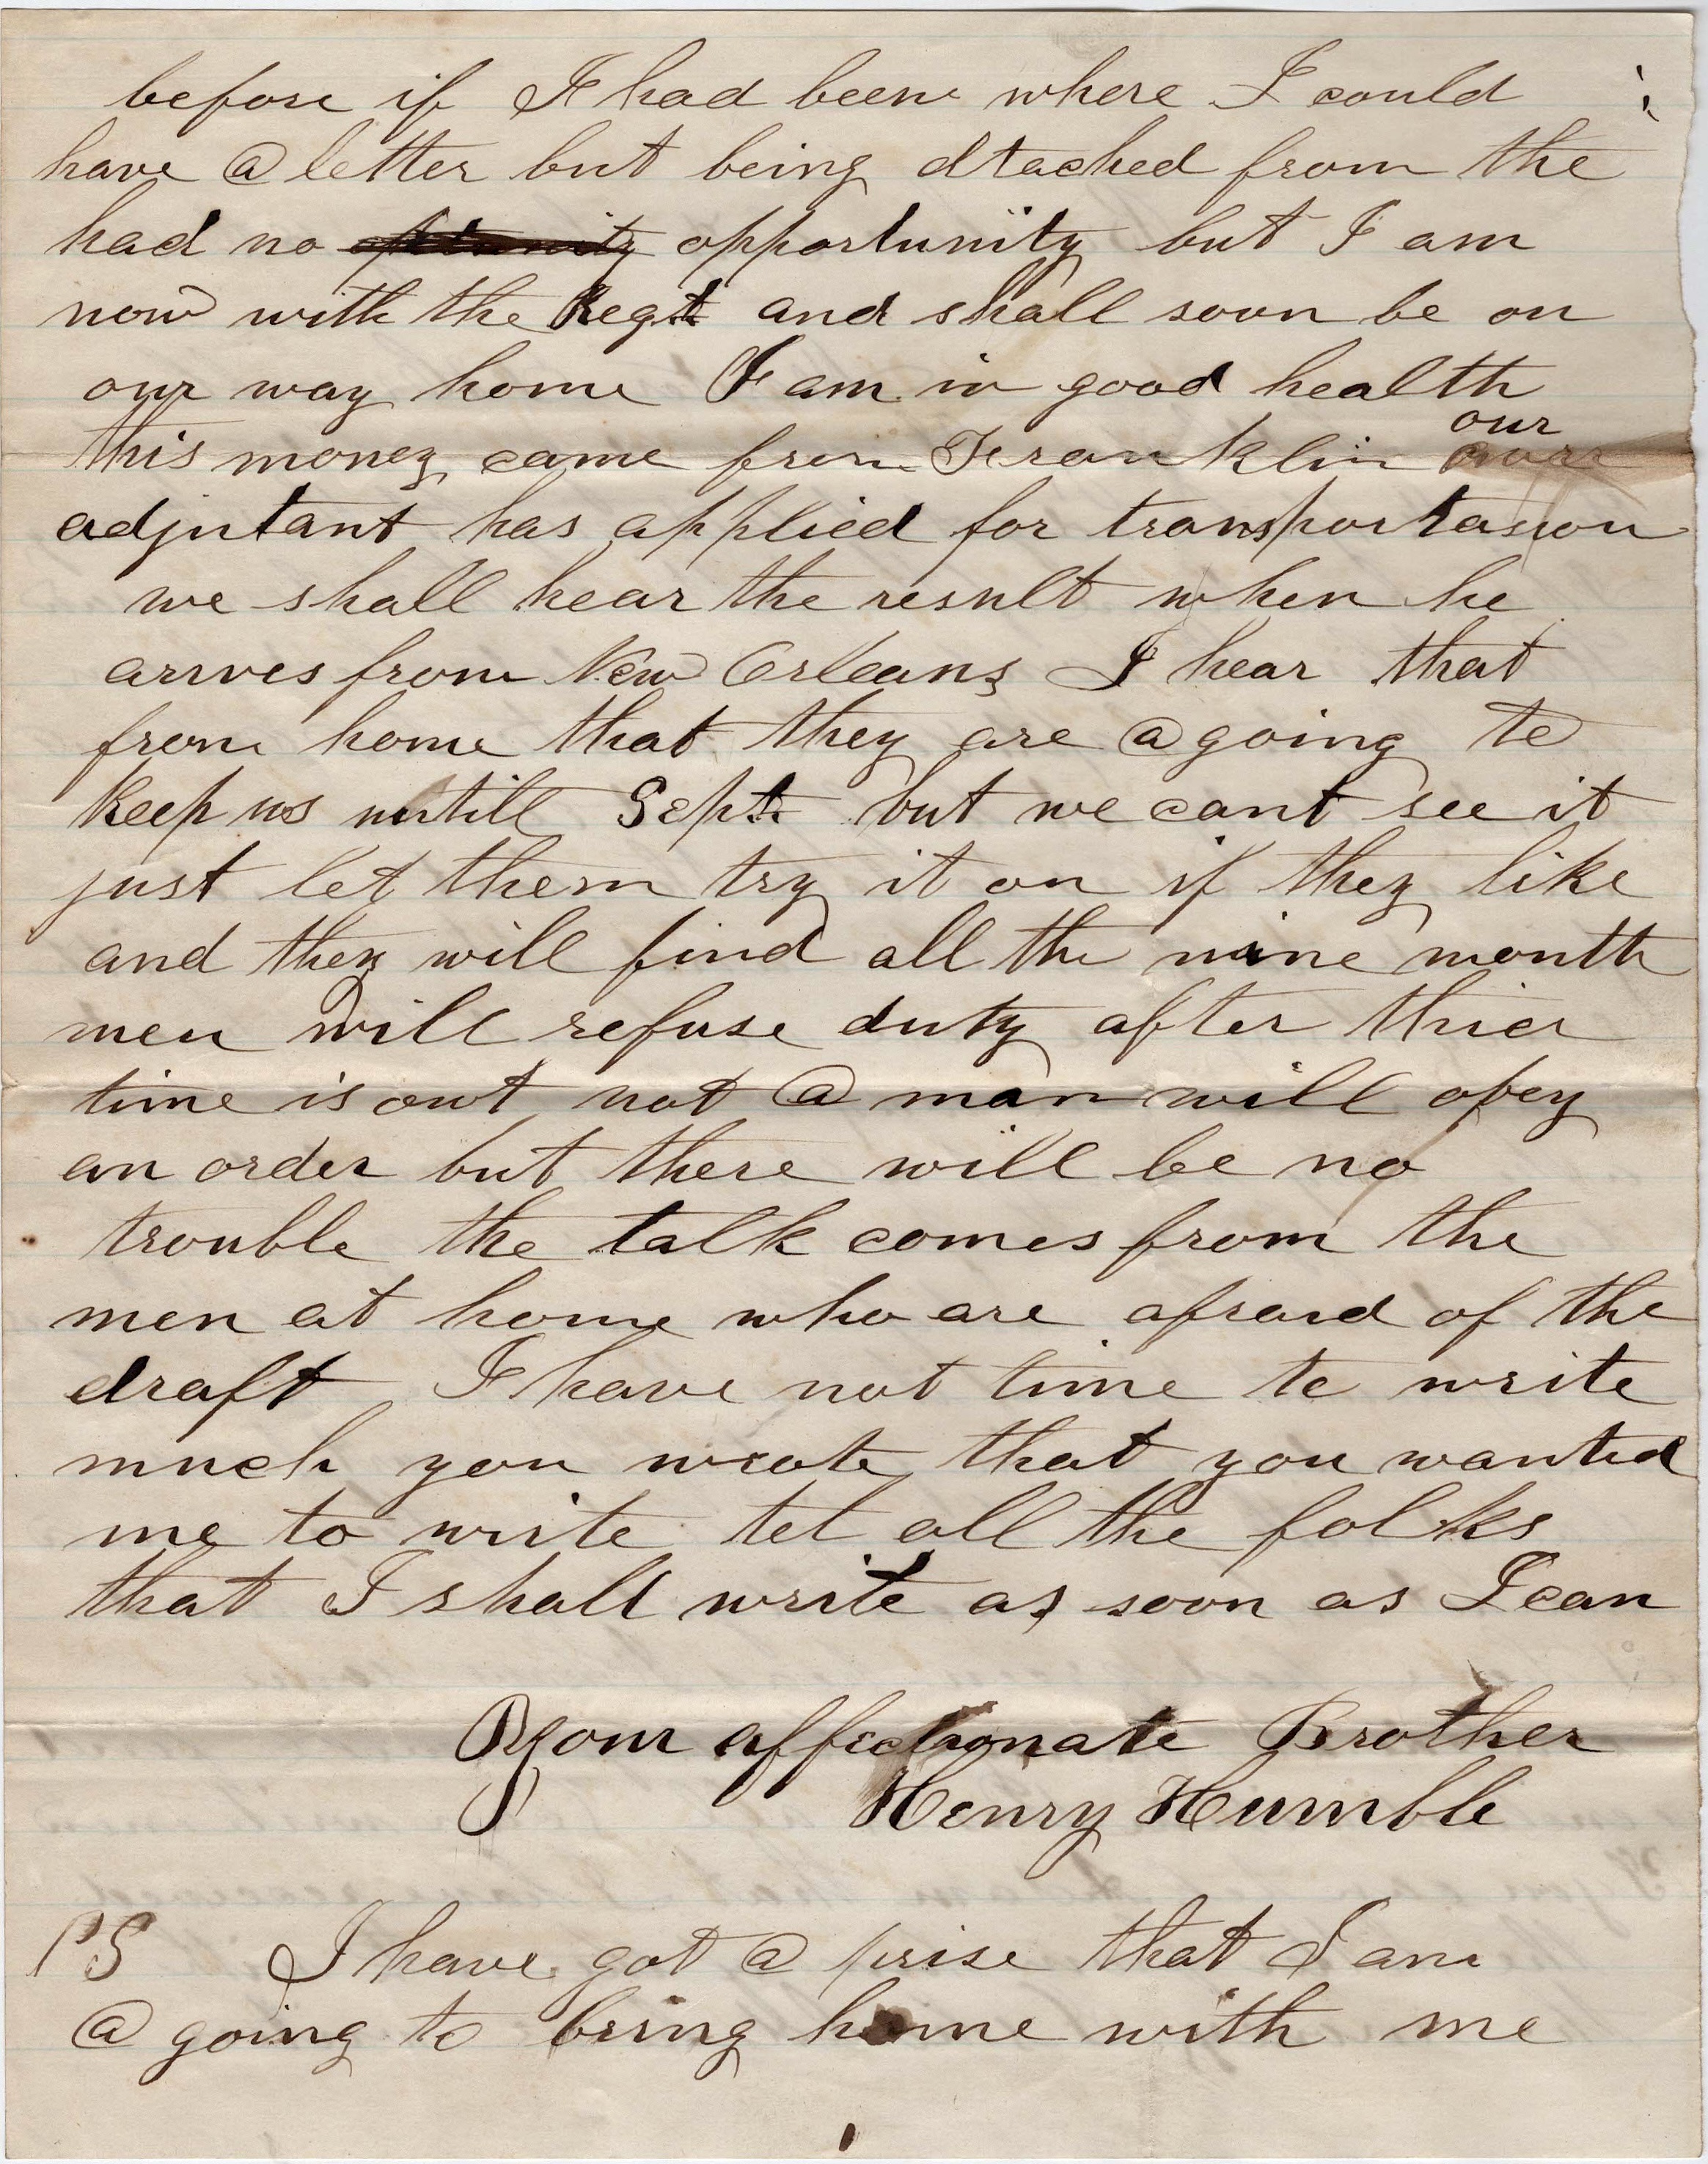 before if I had been where I could
have a letter but being dtached from the
had no opportunity but I am
now with the Regt and shall soon be on
our way home I am in good health
this money came from Franklin our
adjutant has applied for transportasion
we shall hear the result when he
arives from New Orleans I hear that
from home that they are a going to
keep us untill Sept but we cant see it
just let them try it on if they like
and they will find all the nine month
men will refuse duty after thier
time is out not a man will obey
an order but there will be no
trouble the talk comes from the
men at home who are afraid of the
draft I have not time to write
much you wrote that you wanted
me to write tel all the folks
that I shall write as soon as I can
Your affectionate Brother
Henry Humble
PS I have got a prise that I am
a going to bring home with me